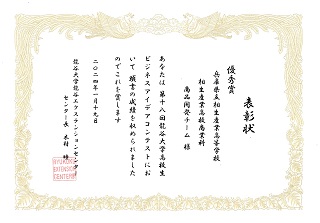 表彰状
優秀賞
兵庫県立相生産業高等学校
相生産業高校商業科
商品開発チーム 様
あなたは第十八回龍谷大学高校生
ビジネスアイデアコンテストにお
いて頭書の成績を収められました
のでこれを賞します
二〇二四年一月十九日
龍谷大学龍谷エクステンションセンター
センター長 木村 睦
RYUKOKU
EXTENSION
CENTER